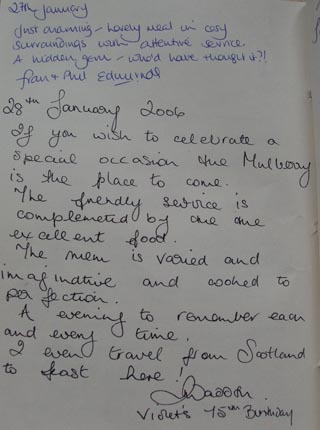 27th January
Just charming - Lovely meal in cosy
surroundings with attentive service
A hidden gem - who'd have thought it?!
Fran + Phil Edmunds
28th January 2006
If you wish to celebrate a
special occasion the Mulberry
is the place to come.
The friendly service is
complemeted by the the
excellent food.
The menu is varied and
imaginative and cooked to
perfection.
A evening to remember each
and every time.
I even travel from Scotland
to feast here!
Violet's 75th Birthday